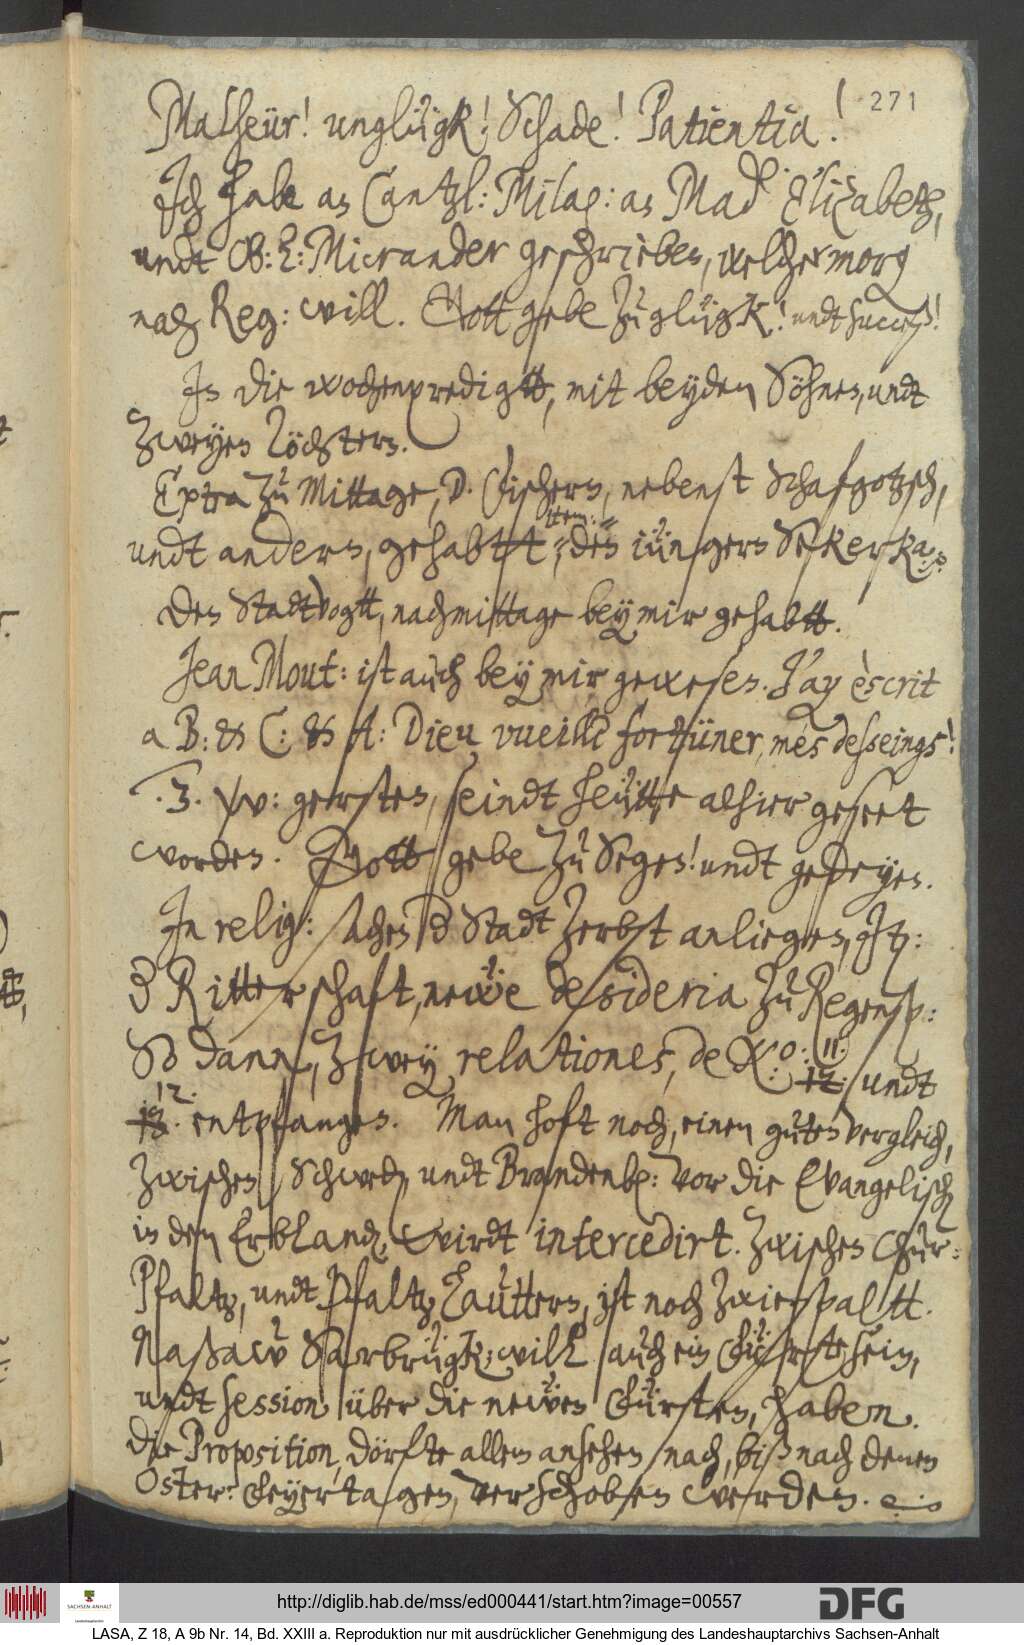 271
Malheür! unglügk! Schade! Patientia!
Ich habe an Cantzl: Milag: an Mad Elizabeth,
undt OB: L: Micrander geschrieben, welcher morg
nach Reg: will. Gott gebe zu glügk! undt succeß!
In die wochenpredigtt, mit beyden Söhnen, undt
zweyen Töchtern.
Extra zu Mittage, D. Fischern, nebenst Schafgotzsch,
undt andern, gehabtt
Item:
den iüngern Sekerka
den Stadtvogtt, nachmittage bey mir gehabtt.
Jean Mout: ist auch bey mir gewesen. J'ay èscrit
a B: & C: & A: Dieu vueille fortüner, mes desseings!
3. w: gersten, seindt heütte alhier geseet
worden. Gott gebe zu Segen! undt gedeyen.
In relig: sachen d Stadt Zerbst anliegen, Itz:
d Ritterschaft, newe desideria zu Regensp:
So dann, zwey relationes, de X.o: 11. 12. undt
12. 13. entpfangen. Man hoft noch, einen guten vergleich,
zwischen Schwed, undt Brandenb: vor die Evangelisch
in den Erbland, wirdt intercedirt. Zwischen Chur-
Pfaltz, undt Pfaltz Lauttern, ist noch zwiespaltt.
Naßaw Sarbrügk: will auch ein Fürste sein,
undt session über die newen Fürsten, haben.
Die Proposition, dörfte allem ansehen nach, biß nach denen
Oster: Feyertagen, verschoben werden.
SACHSEN-ANHALT
http://diglib.hab.de/mss/ed000441/start.htm?image=00557
DFG
LASA, Z 18, A 9b Nr. 14, Bd. XXIII a. Reproduktion nur mit ausdrücklicher Genehmigung des Landeshauptarchivs Sachsen-Anhalt